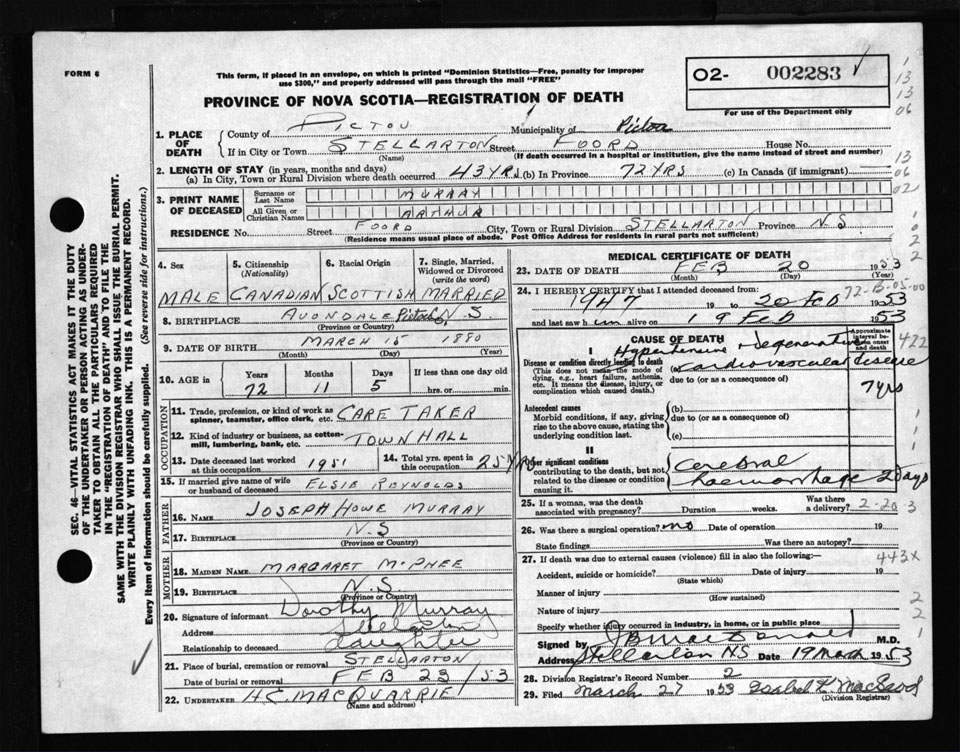 FORM 6
This form, if placed in an envelope, on which is printed "Dominion Statistics—Free, penalty for improper
use $300," and properly addressed will pass through the mail "FREE"
O2- 002283 ✓
For use of the Department only
PROVINCE OF NOVA SCOTIA—REGISTRATION OF DEATH
1. PLACE OF DEATH
County of PICTOU Municipality of Pictou
If in City or Town STELLARTON Street FOORD House No.
(Name) (If death occurred in a hospital or institution, give the name instead of street and number)
2. LENGTH OF STAY (in years, months and days)
(a) In City, Town or Rural Division where death occurred 43 YRS (b) In Province 72 YRS (c) In Canada (if immigrant)
3. PRINT NAME OF DECEASED
Surname or Last Name MURRAY
All Given or Christian Names ARTHUR
RESIDENCE No. Street FOORD City, Town or Rural Division STELLARTON Province N.S.
(Residence means usual place of abode. Post Office Address for residents in rural parts not sufficient)
4. Sex MALE
5. Citizenship (Nationality) CANADIAN
6. Racial Origin SCOTTISH
7. Single, Married, Widowed or Divorced (write the word) MARRIED
8. BIRTHPLACE AVONDALE Pictou Co N.S.
(Province or Country)
9. DATE OF BIRTH MARCH 15 1880
(Month) (Day) (Year)
10. AGE in Years 72 Months 11 Days 5 If less than one day old hrs. or min.
OCCUPATION
11. Trade, profession, or kind of work as spinner, teamster, office clerk, etc. CARE TAKER
12. Kind of industry or business, as cotton-mill, lumbering, bank, etc. TOWN HALL
13. Date deceased last worked at this occupation 1951
14. Total yrs. spent in this occupation 25 YRS
15. If married give name of wife or husband of deceased ELSIE REYNOLDS
FATHER
16. NAME JOSEPH HOWE MURRAY
17. BIRTHPLACE N.S
(Province or Country)
MOTHER
18. MAIDEN NAME MARGARET MCPHEE
19. BIRTHPLACE N.S
(Province or Country)
20. Signature of informant Dorothy Murray
Address Stellarton
Relationship to deceased Daughter
21. Place of burial, cremation or removal STELLARTON
Date of burial or removal FEB 23 /53
22. UNDERTAKER H.C. MACQUARRIE
(Name and address)
MEDICAL CERTIFICATE OF DEATH
23. DATE OF DEATH FEB 20 1953
(Month) (Day) (Year)
24. I HEREBY CERTIFY that I attended deceased from:
1947 19 to 20 Feb 1953
and last saw him alive on 19 Feb 1953
CAUSE OF DEATH
Approximate interval between onset and death
I
Disease or condition directly leading to death
(This does not mean the mode of dying, e.g., heart failure, asthenia, etc. It means the disease, injury, or complication which caused death.)
Hypertensive + degenerative
cardiovascular disease 7 yrs
due to (or as a consequence of)
Antecedent causes
Morbid conditions, if any, giving rise to the above cause, stating the underlying condition last.
(b)
due to (or as a consequence of)
(c)
II
Other significant conditions
contributing to the death, but not related to the disease or condition causing it.
Cerebral
haemorrhage 2 Days
25. If a woman, was the death associated with pregnancy? Duration weeks. Was there a delivery?
2-20-3
26. Was there a surgical operation? no Date of operation 19
State findings Was there an autopsy?
27. If death was due to external causes (violence) fill in also the following:
443X
Accident, suicide or homicide? Date of injury 19
(State which)
Manner of injury
(How sustained)
Nature of injury
Specify whether injury occurred in industry, in home, or in public place
Signed by J B MacDonald M.D.
Address Stellarton NS Date 19 March 1953
28. Division Registrar's Record Number 2
29. Filed March 27 1953 Isabel K. MacLeod
(Division Registrar)
SEC. 46 VITAL STATISTICS ACT MAKES IT THE DUTY
OF THE UNDERTAKER OR PERSON ACTING AS UNDER-
TAKER TO OBTAIN ALL THE PARTICULARS REQUIRED
IN THE "REGISTRATION OF DEATH" AND TO FILE THE
SAME WITH THE DIVISION REGISTRAR WHO SHALL ISSUE THE BURIAL PERMIT.
WRITE PLAINLY WITH UNFADING INK. THIS IS A PERMANENT RECORD.
Every item of information should be carefully supplied. (See reverse side for instructions.)
1
13
13
06
13
06
02
1
0
2
2
72-B-05-00
422